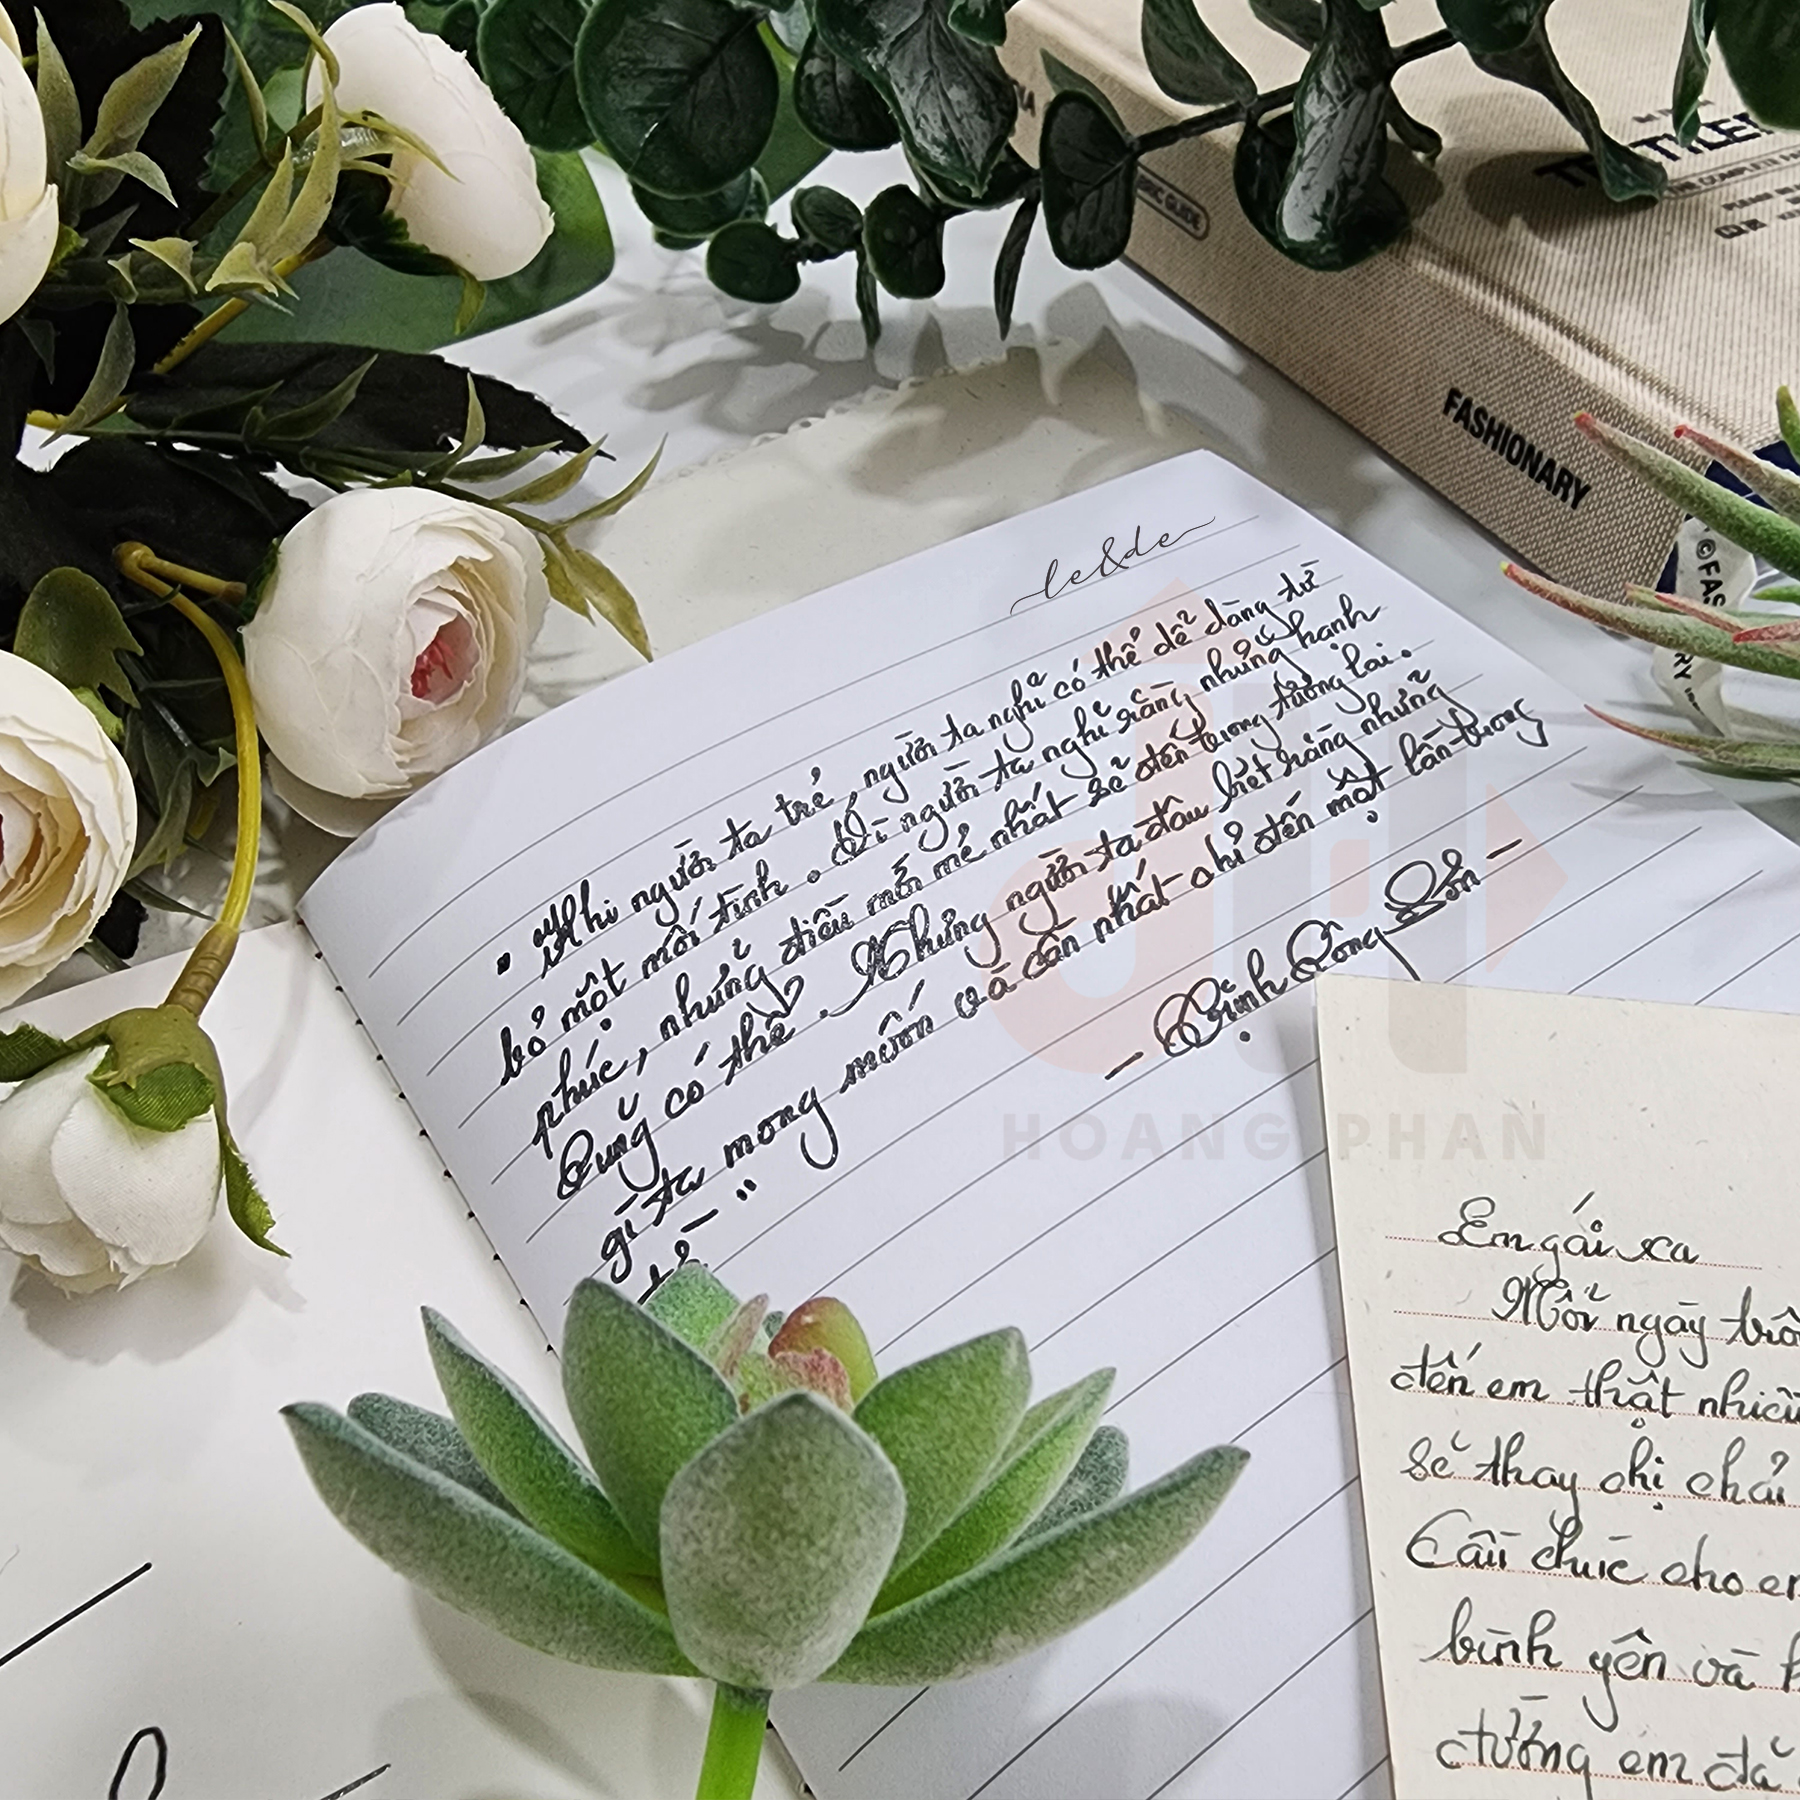 FASHIONARY
le&de
" Khi người ta trẻ, người ta nghĩ có thể dễ dàng từ
bỏ một mối tình. Vì người ta nghĩ rằng những hạnh
phúc, những điều mới mẻ nhất sẽ đến trong tương lai.
Cũng có thể. Nhưng người ta đâu biết rằng những
gì ta mong muốn và cần nhất chỉ đến một lần trong
"
– Trịnh Công Sơn –
HOANG PHAN
Em gái xa
Mỗi ngày trô
đến em thật nhiều
sẽ thay chị chă
Cầu chúc cho em
bình yên và h
tưởng em đã